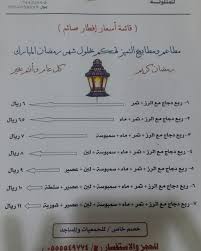 ( قائمة أسعار إفطار صائم )
مطاعم ومطابخ التميز تهنئكم بحلول شهر رمضان المبارك
رمضان كريم
كل عام وأنتم بخير
١- ربع دجاج مع الرز + تمر ٦ ريال
٢- ربع دجاج مع الرز + تمر + ماء ٦.٥ ريال
٣- ربع دجاج مع الرز + تمر + ماء + سمبوسة ٧ ريال
٤- ربع دجاج مع الرز + تمر + ماء + سمبوسة + لبن ٨ ريال
٥- ربع دجاج مع الرز + تمر + ماء + سمبوسة + لبن + عصير ٩ ريال
٦- ربع دجاج مع الرز + تمر + ماء + سمبوسة + لبن + عصير + سلطة ١٠ ريال
٧- ربع دجاج مع الرز + تمر + ماء + سمبوسة + لبن + عصير + شوربة ١١ ريال
خصم خاص / للجمعيات والمساجد
للحجز والاستفسار / ج :